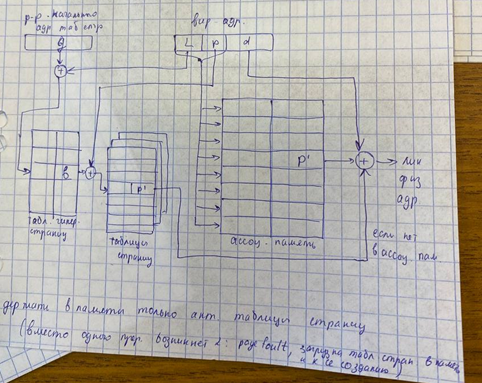 р-р начально
адр таб гипер.
вир. адр.
L p d
a
b
p'
p'
лин
физ
адр
табл. гипер.
страниц
таблицы
страниц
ассоц. память
если нет
в ассоц. пам
держать в памяти только акт. таблицы страниц
(вместо одного прер. возникнет 2: page fault, загрузка табл стран в памя
и к её созданию)